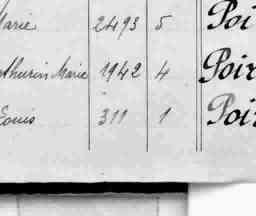 Marie 2493 5 Poi
thurin Marie 1942 4 Poir
Louis 311 1 Poir